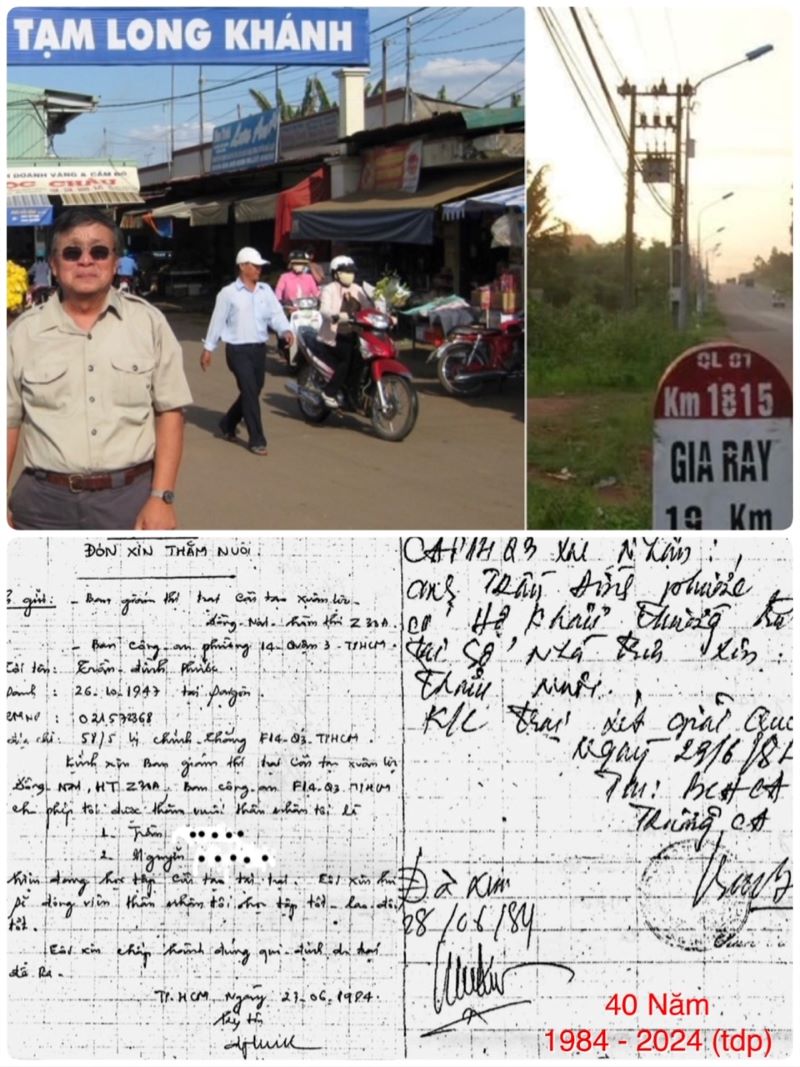 TẠM LONG KHÁNH
H DOANH VÀNG & CẦM ĐỒ
ỌC CHÂU
QL 01
Km 1815
GIA RAY
19 Km
ĐƠN XIN THĂM NUÔI.
gửi: - Ban giám thị trại Cải tạo Xuân Lộc
Đồng Nai. hòm thư Z 30A.
- Ban công an phường 14. Quận 3. TPHCM.
Tôi tên: Trần đình Phước.
Sanh : 26.10.1947 tại Saigon.
CMND : 021572368
địa chỉ: 58/5 Lý chính Thắng F14.Q3.TPHCM.
Kính xin Ban giám thị trại Cải tạo Xuân Lộc
Đồng Nai, HT Z30A. Ban công an F14.Q3.TPHCM
cho phép tôi được thăm nuôi thân nhân tôi là
1. Trần •••••
2. Nguyễn ••••••
hiện đang học tập Cải tạo tại trại. Tôi xin hứa
sẽ động viên thân nhân tôi học tập tốt. lao động
tốt.
Tôi xin chấp hành đúng qui định do trại
đề ra.
TP.HCM, Ngày 27.06.1984.
Ký tên
CAPH Q3 xác Nhận:
anh Trần Đình phước
có Hộ khẩu Thường trú
tại Số Nhà trên xin
Thăm Nuôi.
K/C Trại xét giải Quyết
Ngày 29/6/84
TM: BCH CA
Trưởng CA
28/06/84
40 Năm
1984 - 2024 (tdp)